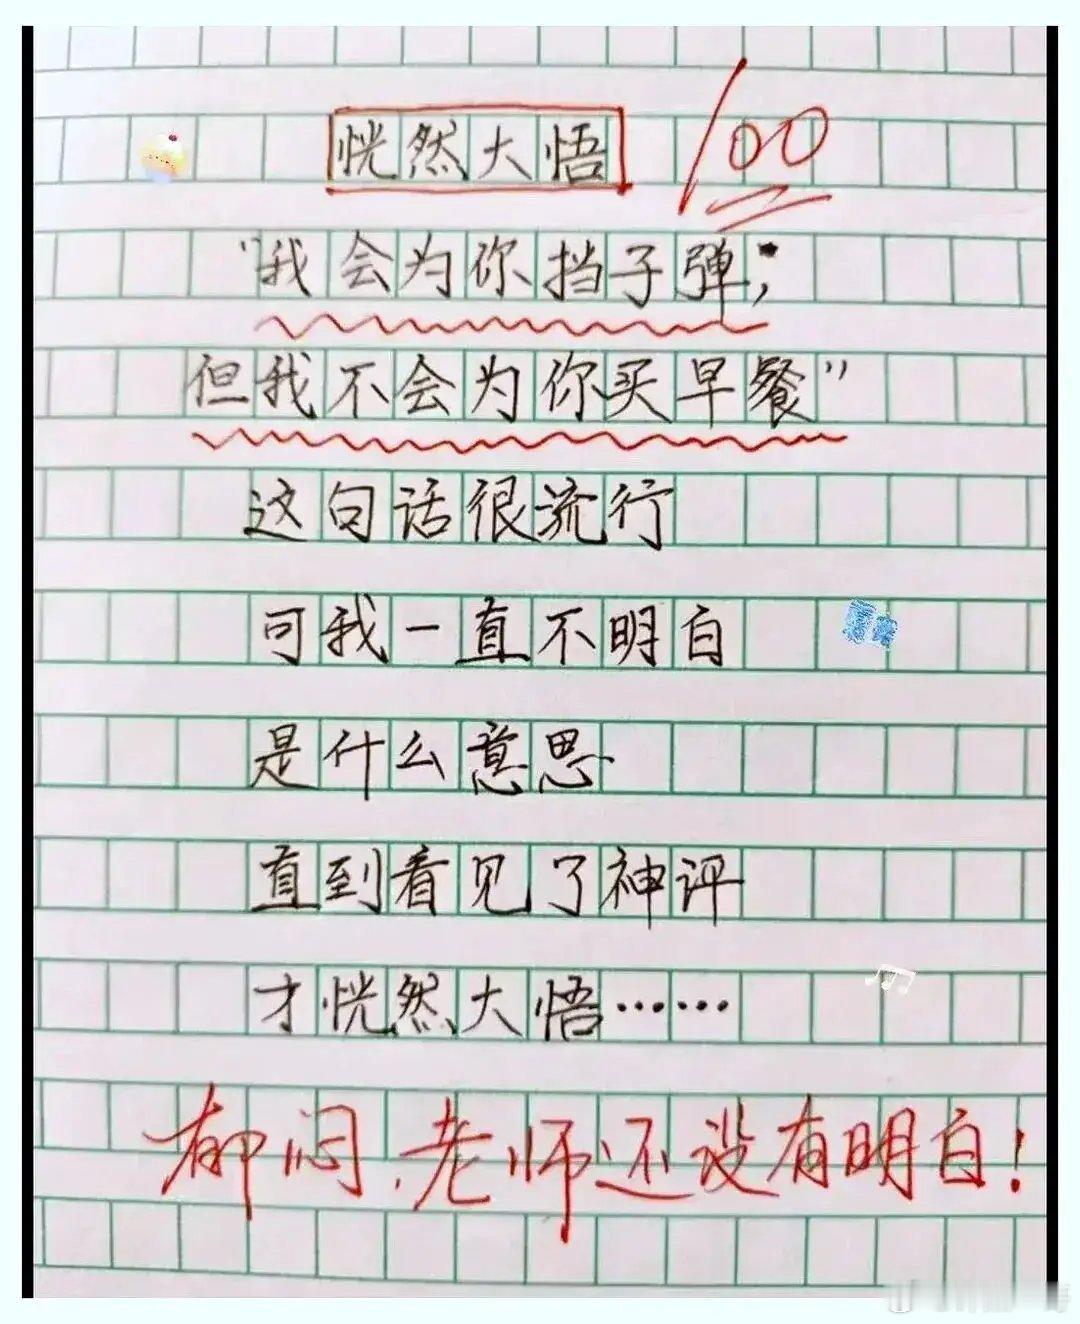 恍然大悟
100
“我会为你挡子弹，
但我不会为你买早餐”
这句话很流行
可我一直不明白
是什么意思
直到看见了神评
才恍然大悟……
郁闷，老师还没有明白！